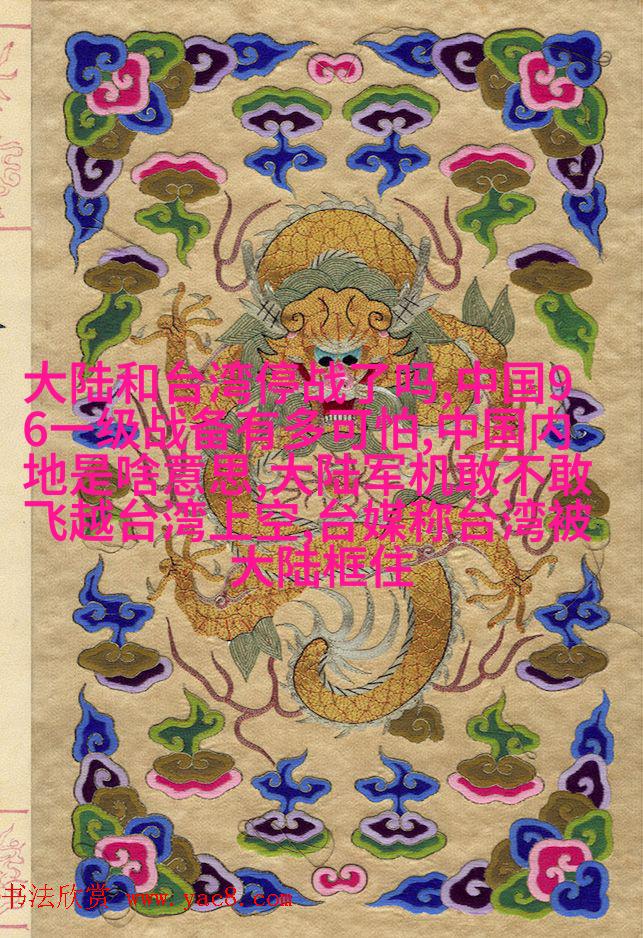 大陆和台湾停战了吗,中国9
6一级战备有多可怕,中国内
地是啥意思,大陆军机敢不敢
飞越台湾上空,台媒称台湾被
大陆框住
书法欣赏 www.yac8.com